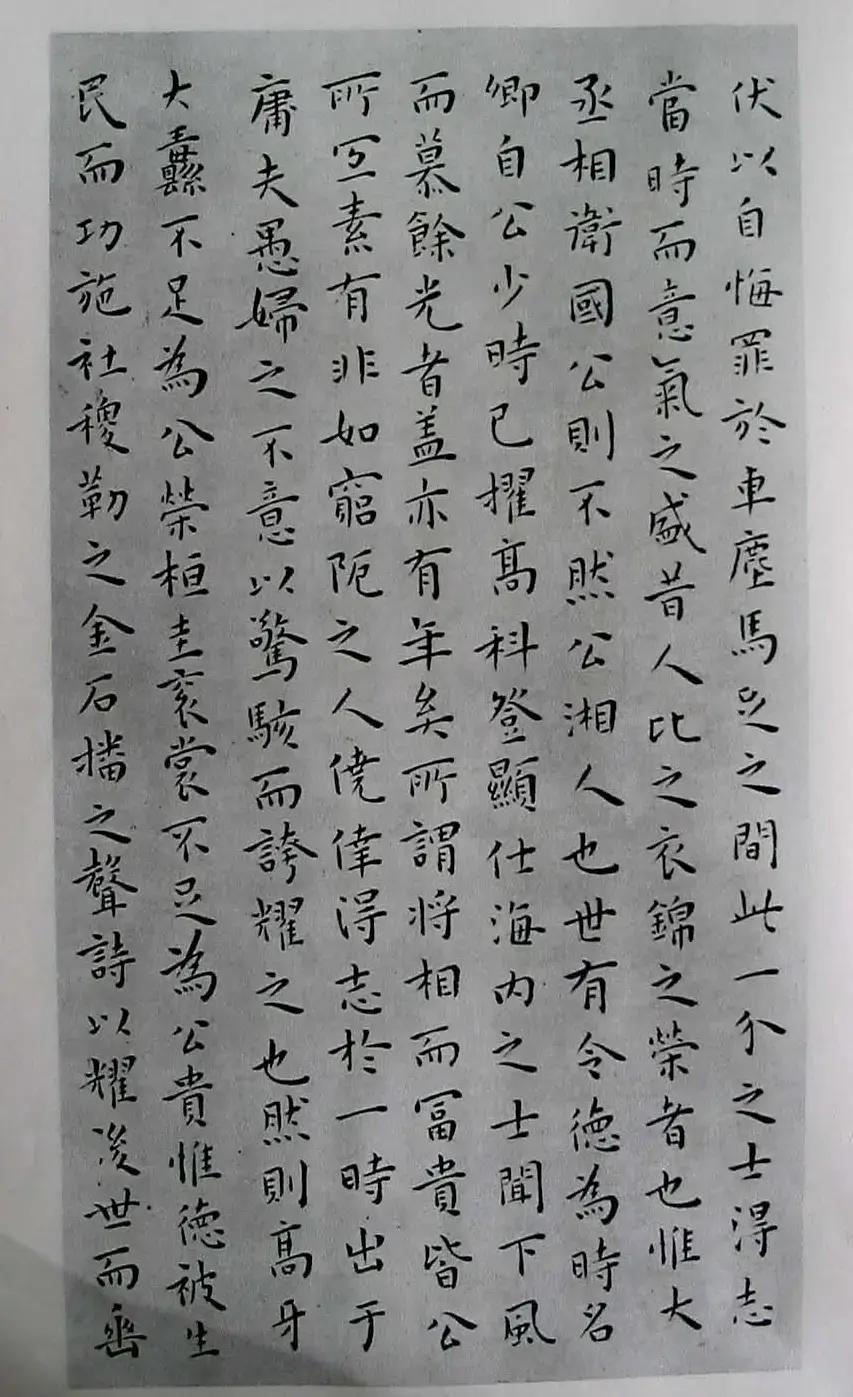 伏以自悔罪於車塵馬足之間此一介之士得志
當時而意氣之盛昔人比之衣錦之榮者也惟大
丞相衛國公則不然公湘人也世有令德為時名
卿自公少時已擢高科登顯仕海內之士聞下風
而慕餘光者盖亦有年矣所謂将相而冨貴皆公
所宜素有非如窮阨之人僥倖得志於一時出于
庸夫愚婦之不意以驚駭而誇耀之也然則高牙
大纛不足為公榮桓圭衮裳不足為公貴惟德被生
民而功施社稷勒之金石播之聲詩以耀後世而垂